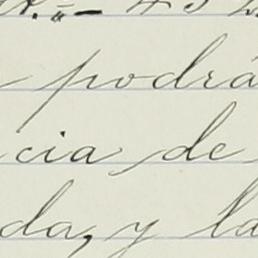 podrá
cia de
da, y la